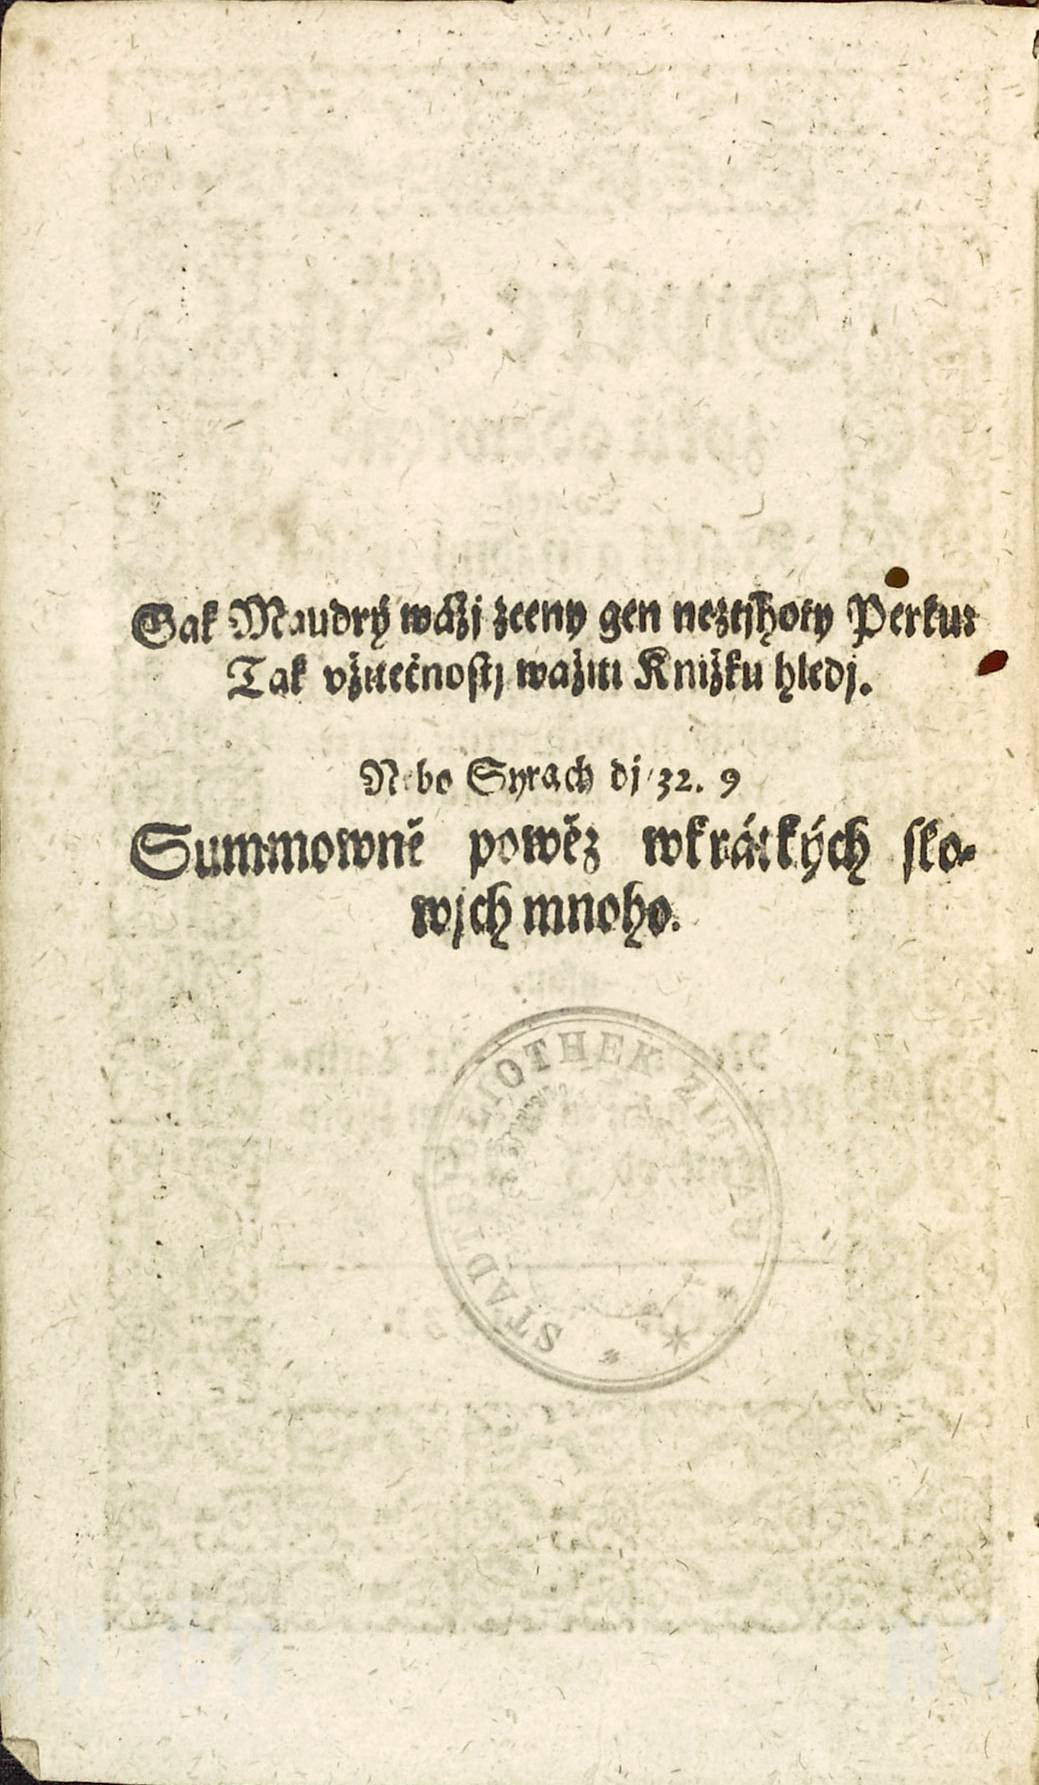 Gak Maudrý wážj zceny gen neztjhoty Perku:
Tak vžitečnostj wažiti Knižku hledj.
Nebo Syrach dj 32. 9
Summowně powěz wkrátkých slo-
wjch mnoho.
STADTBIBLIOTHEK ZITTAU